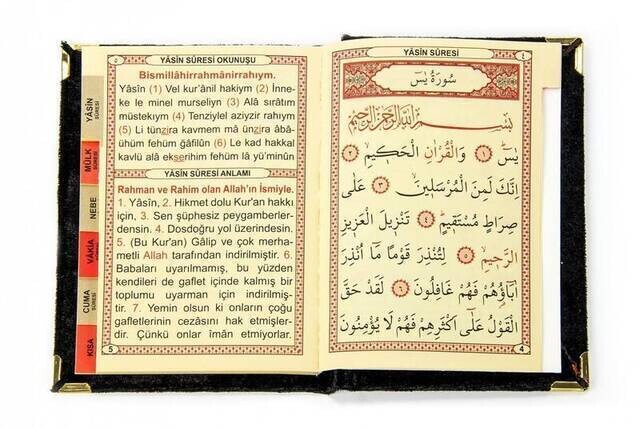 YÂSÎN SÛRESİ
٤
سُورَةُ يٰسٓ
بِسْمِ اللّٰهِ الرَّحْمٰنِ الرَّحِيمِ
يٰسٓ ﴿١﴾ وَالْقُرْاٰنِ الْحَكِيمِ ﴿٢﴾
اِنَّكَ لَمِنَ الْمُرْسَلِينَ ﴿٣﴾ عَلٰى
صِرَاطٍ مُسْتَقِيمٍ ﴿٤﴾ تَنْزِيلَ الْعَزِيزِ
الرَّحِيمِ ﴿٥﴾ لِتُنْذِرَ قَوْمًا مَٓا اُنْذِرَ
اٰبَٓاؤُهُمْ فَهُمْ غَافِلُونَ ﴿٦﴾ لَقَدْ حَقَّ
الْقَوْلُ عَلٰٓى اَكْثَرِهِمْ فَهُمْ لَا يُؤْمِنُونَ
4
٥
YÂSÎN SÛRESİ OKUNUŞU
Bismillâhirrahmânirrahıym.
Yâsîn (1) Vel kur'ânil hakiym (2) İnne-
ke le minel murseliyn (3) Alâ sırâtım
müstekıym (4) Tenziylel aziyzir rahıym
(5) Li tünzira kavmem mâ ünzira âbâ-
ühüm fehüm ğâfilûn (6) Le kad hakkal
kavlü alâ ekserihim fehüm lâ yü'minûn
YÂSÎN SÛRESİ ANLAMI
Rahman ve Rahim olan Allah'ın İsmiyle.
1. Yâsîn, 2. Hikmet dolu Kur'an hakkı
için, 3. Sen şüphesiz peygamberler-
densin. 4. Dosdoğru yol üzerindesin.
5. (Bu Kur'an) Gâlip ve çok merha-
metli Allah tarafından indirilmiştir. 6.
Babaları uyarılmamış, bu yüzden
kendileri de gaflet içinde kalmış bir
toplumu uyarman için indirilmiş-
tir. 7. Yemin olsun ki onların çoğu
gafletlerinin cezâsını hak etmişler-
dir. Çünkü onlar îmân etmiyorlar.
5
YÂSÎN
SÛRESİ
MÜLK
SÛRESİ
NEBE
VÂKIA
SÛRESİ
CUMA
SÛRESİ
KISA